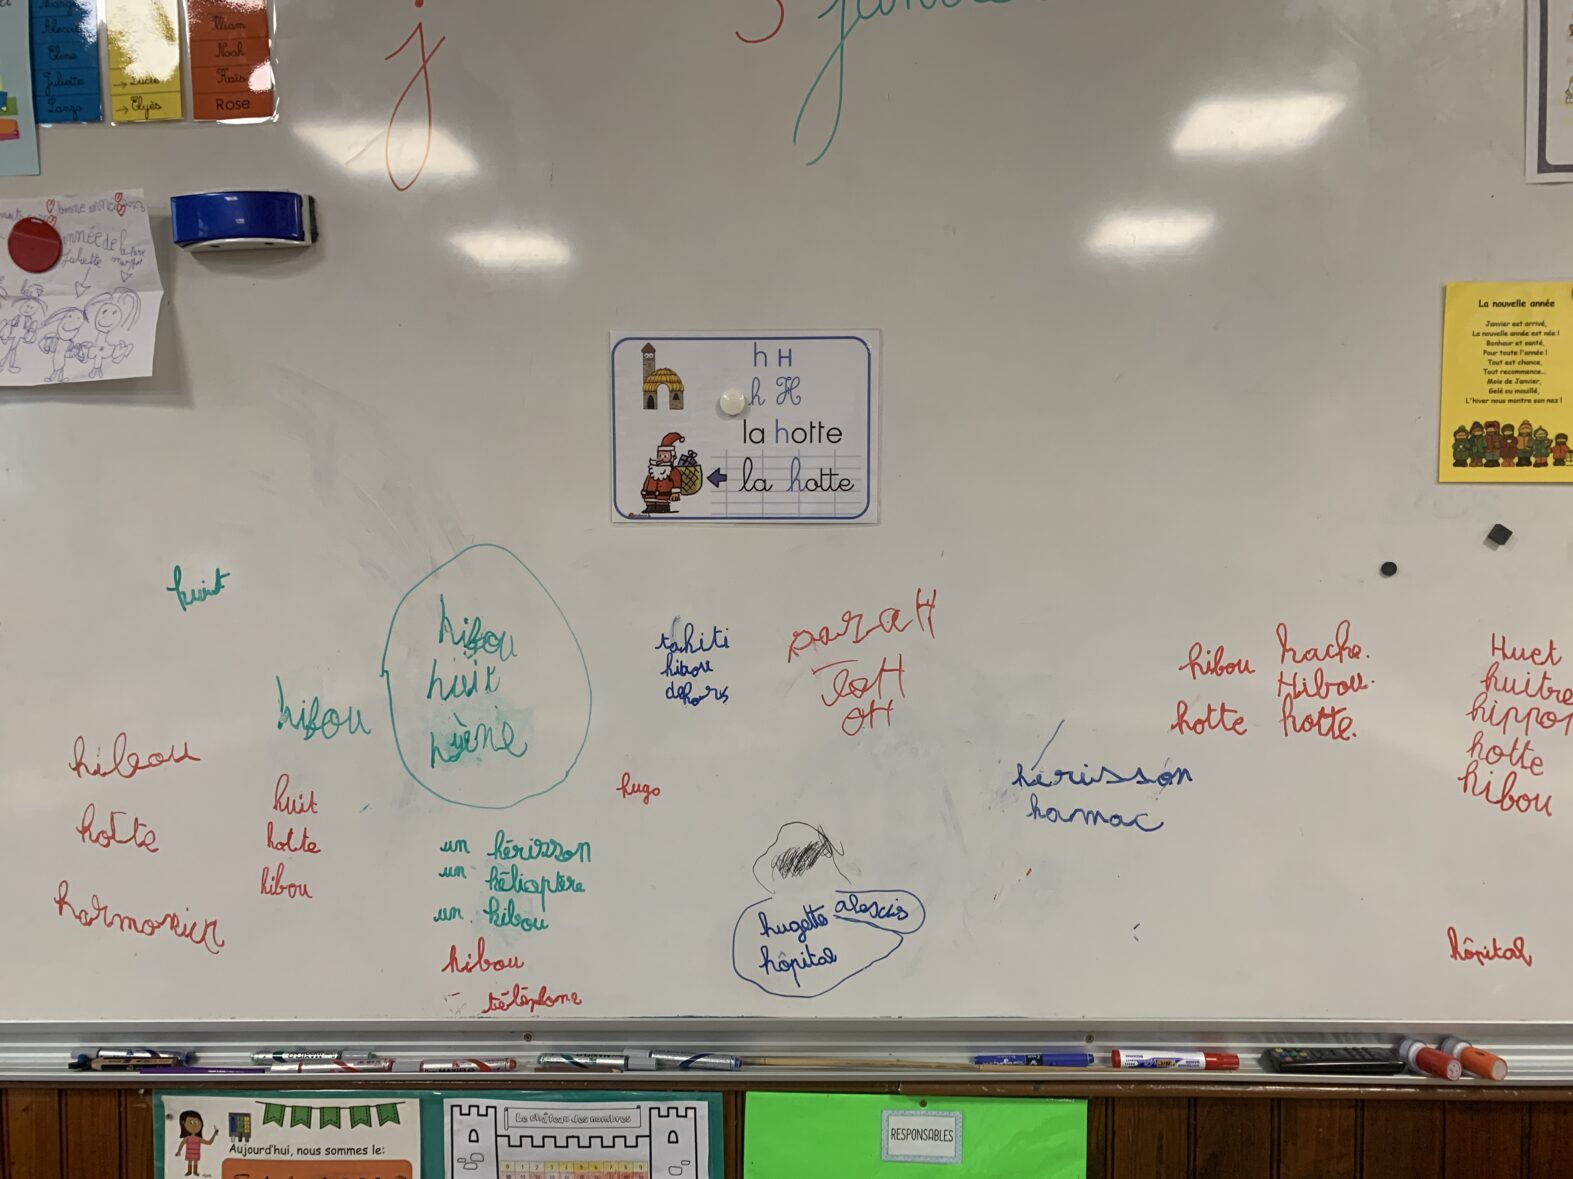 Eline
Juliette
Lenzo
Lucie
Elyès
Noah
Kaïs
Rose
j
j
bonne
année de
Juliette
h H
h H
la hotte
la hotte
La nouvelle année
Janvier est arrivé,
La nouvelle année est née !
Bonheur et santé,
Pour toute l'année !
Tout est chance,
Tout recommence...
Mois de Janvier,
Gelé ou mouillé,
L'hiver nous montre son nez !
huit
hibou
huit
hyène
hibou
tahiti
hibou
dehors
parzaH
OH
hibou
hotte
hache.
Hibou.
hotte.
Huet
huitre
hippop
hotte
hibou
hileou
hotte
huit
hotte
hibou
hugo
hérisson
hamac
un hérisson
un hélicoptère
un hibou
hibou
téléphone
hugette
hôpital
hôpital
Aujourd'hui, nous sommes le:
Le château des nombres
0 1 2 3 4 5 6 7 8 9
RESPONSABLES